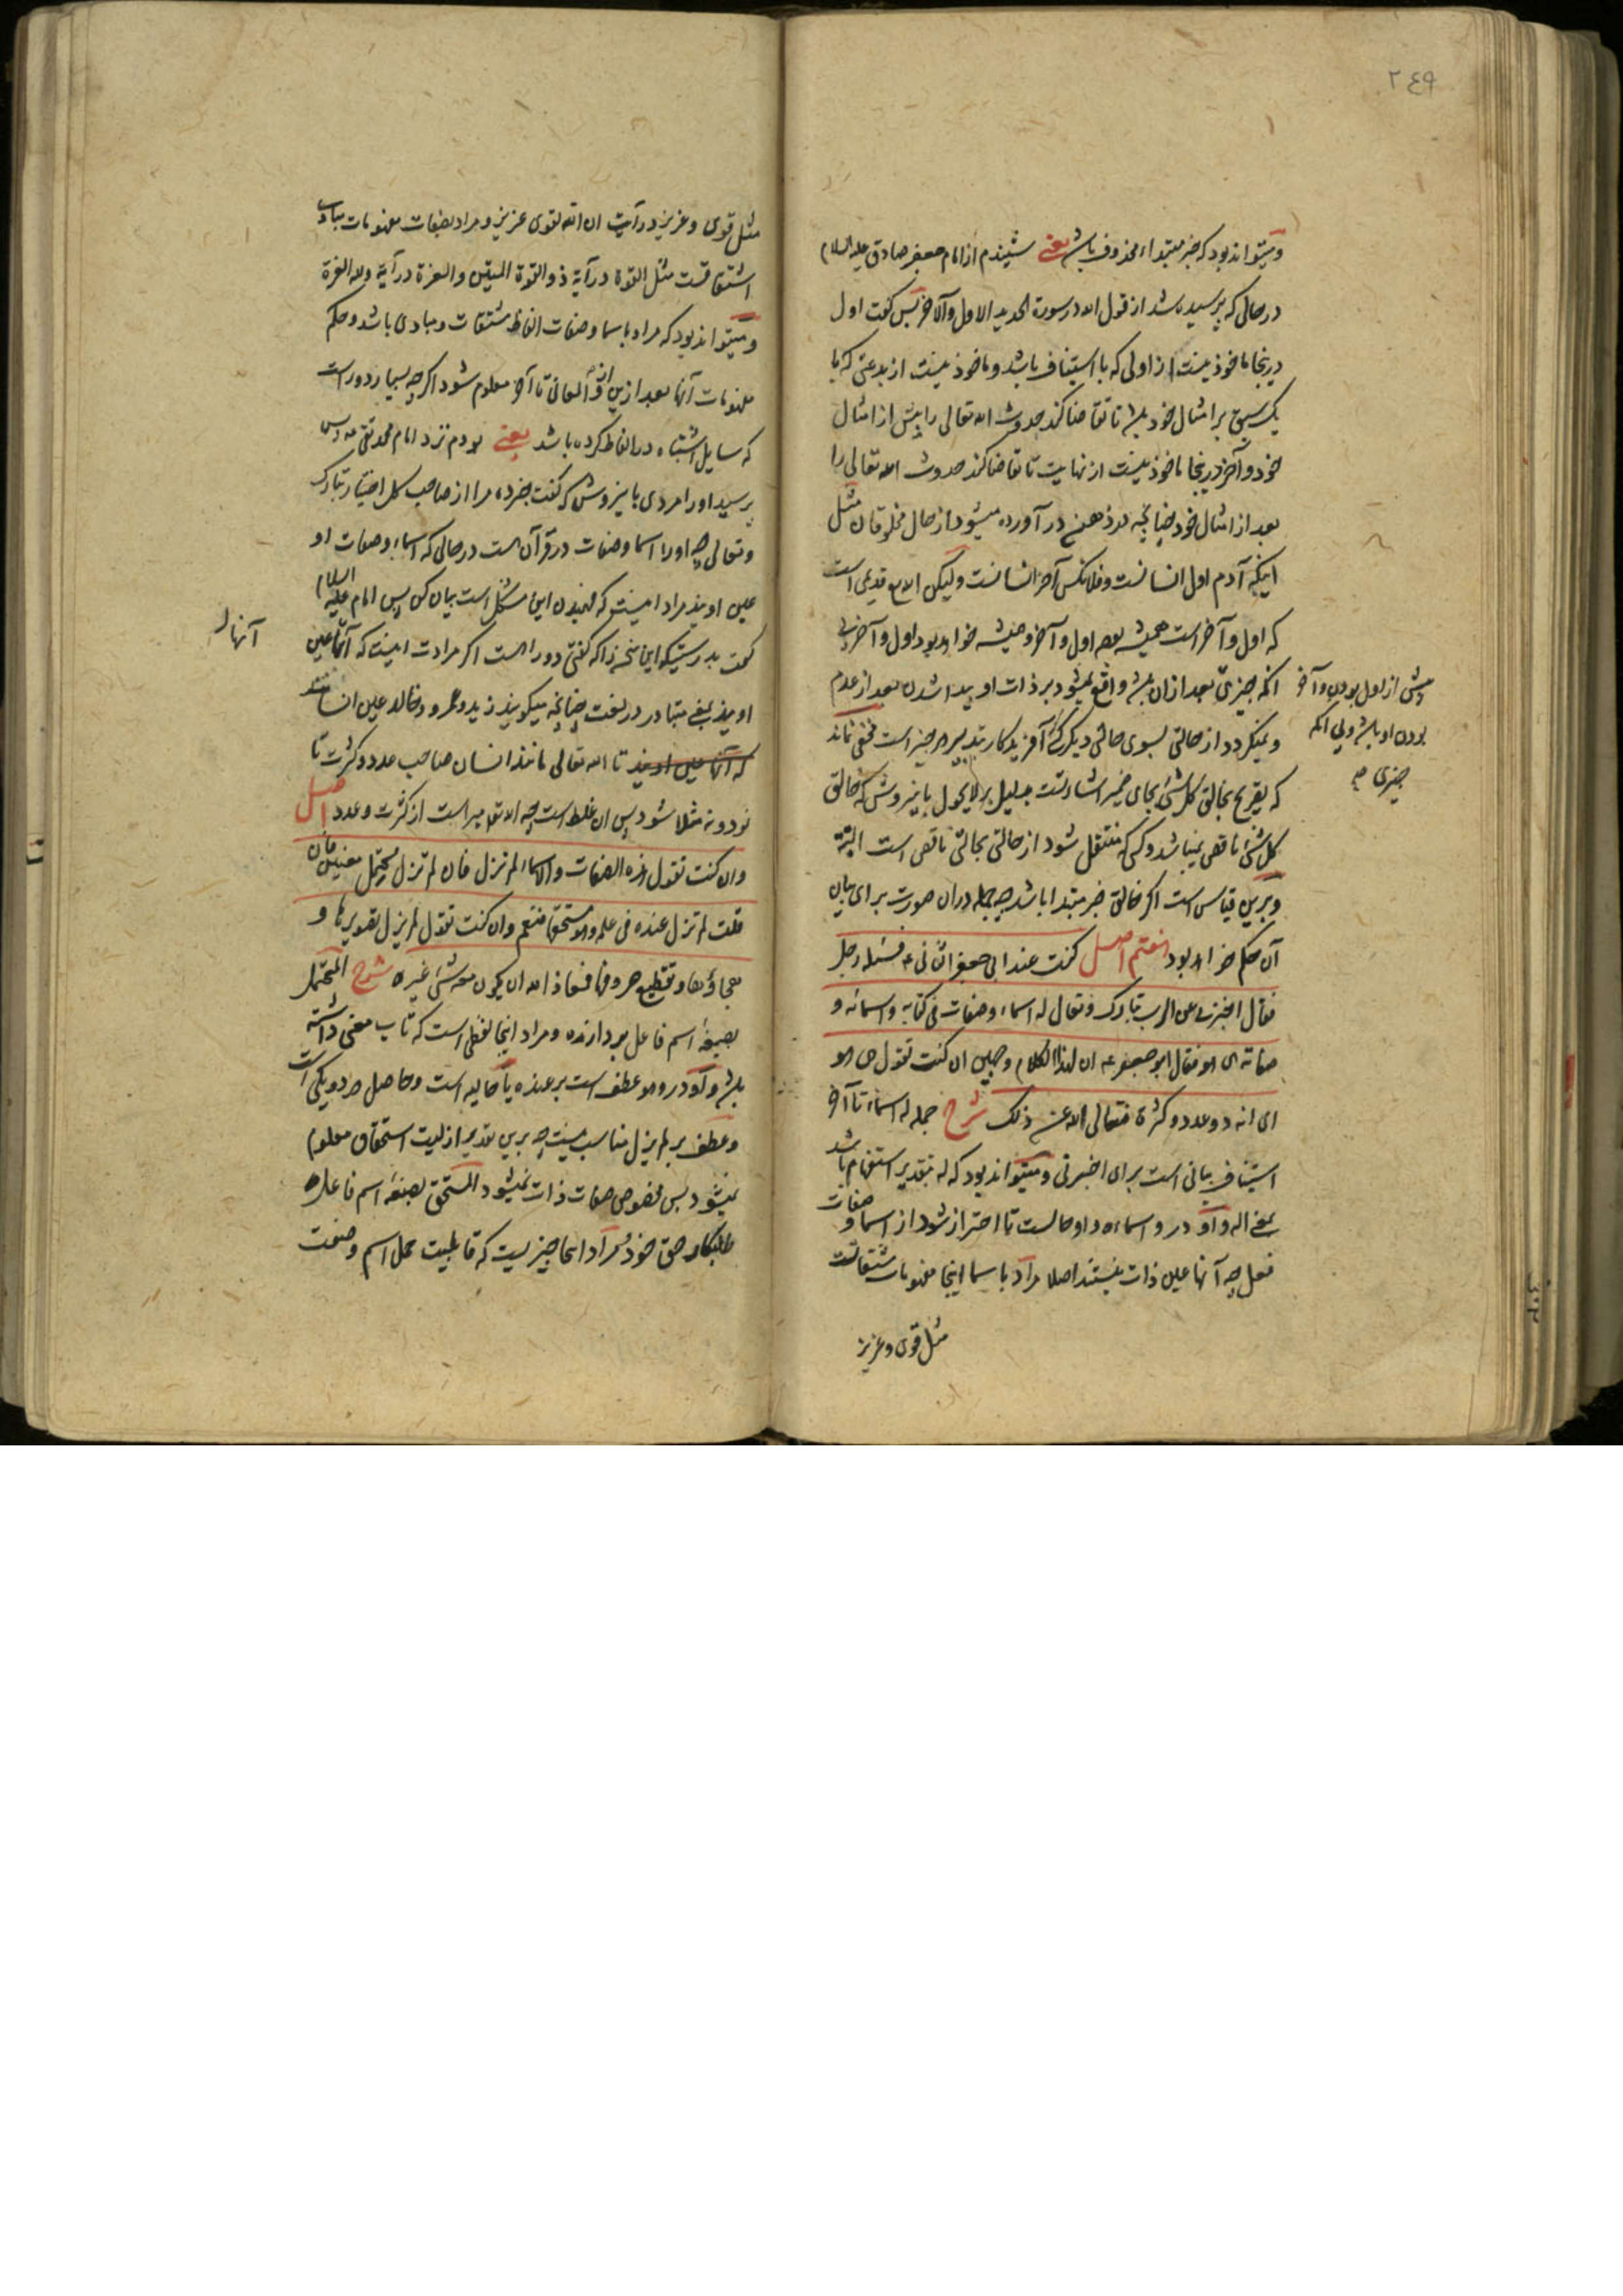 ۲٤۹
و میتواند بود که خبر مبتداء محذوف باشد یعنی شنیدم از امام جعفر صادق علیه السلام
در حالی که پرسیده شد از قول الله در سورة الحدید الاول والآخر پس گفت اول
درینجا ماخوذ نیست از اولی که با استیناف باشد و ماخوذ نیست از بدعتی که با
یک سبق بر امثال خود باشد تا تقاضا کند حدوث الله تعالی را پیش از امثال
خود و آخر درینجا ماخوذ نیست از نهایت تا تقاضا کند حدوث الله تعالی را
بعد از امثال خود چنانچه در ذهن در آورده میشود از حال مخلوقان مثل
اینکه آدم اول انسانست و فلانکس آخر انسانست ولیکن الله قدیمی است
که اول و آخر است همیشه بوده اول و آخر و همیشه خواهد بود اول و آخر بی
آنکه چیزی بعد از ان باشد واقع نمیشود بر ذات او پیدا شدن بعد از عدم
پیش از اول بودن و آخر
بودن او باشد و بی آنکه
چیزی
و نمیگردد از حالتی بسوی حالتی دیگر آفریدگار بتدبیر هر چیز است مخفی نماند
که تصریح بخالق کل شئ بجای ضمیر اشارتست بدلیل بر لا یحول باینروش که خالق
کل شئ ناقص نمیباشد و کسی که منتقل شود از حالتی بحالتی ناقص است البتة
و برین قیاس است اگر خالق خبر مبتدا باشد چه جمله دران صورت برای بیان
آن حکم خواهد بود هفتم اصل کنت عند ابی جعفر الثانی ع فسئله رجل
فقال اخبرنی عن الرب تبارک وتعالی له اسماء وصفات فی کتابه واسمائه و
صفاته هی هو فقال ابو جعفر ع ان لهذا الکلام وجهین ان کنت تقول هی هو
ای انه ذو عدد وکثرة فتعالی الله عن ذلک شرح جمله له اسماء تا آخر
استیناف بیانی است برای اخبرنی و میتواند بود که له بتقدیر استفهام باشد
بمعنی اله و واو در واسماءه واو حالست تا احتراز شود از اسما و صفات
فعل چه آنها عین ذات نیستند اصلا مراد باسما اینجا مفهومات مشتقاتست
مثل قوی و عزیز
مثل قوی و عزیز در آیت ان الله لقوی عزیز و مراد بصفات مفهومات مبادی
اشتقاقست مثل القوة در آیة ذو القوة المتین والعزة در آیة ولله العزة
و میتواند بود که مراد باسما و صفات الفاظ مشتقات و مبادی باشد و حکم
مفهومات آنها بعد ازین از والمعانی تا آخر معلوم شود اگرچه بسیار دور است
که سایل اشتباه در الفاظ کرده باشد یعنی بودم نزد امام محمد تقی ع پس
پرسید او را مردی باینروش که گفت خبر ده مرا از صاحب کل اختیار تبارک
وتعالی چه او را اسما و صفات در قرآن هست در حالی که اسماء و صفات او
عین اویند مراد اینست که فهمیدن این مشکل است بیان کن پس امام علیه السلام
گفت بدرستیکه این سخن را که گفتی دو راهست اگر مرادت اینست که آنها عین
آنها
اویند بمعنی متبادر در لغت چنانچه میگویند زید و عمرو و خالد عین انسانند
که آنها عین اویند تا الله تعالی مانند انسان صاحب عدد و کثرت تا
نود و نه مثلا شود پس ان غلط است چه الله تعالی مبراست از کثرت و عدد اصل
وان کنت تقول هذه الصفات والاسماء لم تزل فان لم تزل محتمل معنیین فان
قلت لم تزل عنده فی علمه وهو مستحقها فنعم وان کنت تقول لم یزل تصویرها و
هجاؤها وتقطیع حروفها فمعاذ الله ان یکون معه شئ غیره شرح المحتمل
بصیغه اسم فاعل بردارنده و مراد اینجا لفظی است که تاب معنی داشته
باشد واو در وهو عطف است بر عنده یا حالیه است و حاصل هر دو یکی است
وعطف بر لم یزل مناسب نیست چه برین تقدیر ازلیت استحقاق معلوم
نمیشود پس مخصوص صفات ذات نمیشود المستحق بصیغه اسم فاعل
طلبکار حق خود مراد اینجا چیزیست که قابلیت حمل اسم و صفت